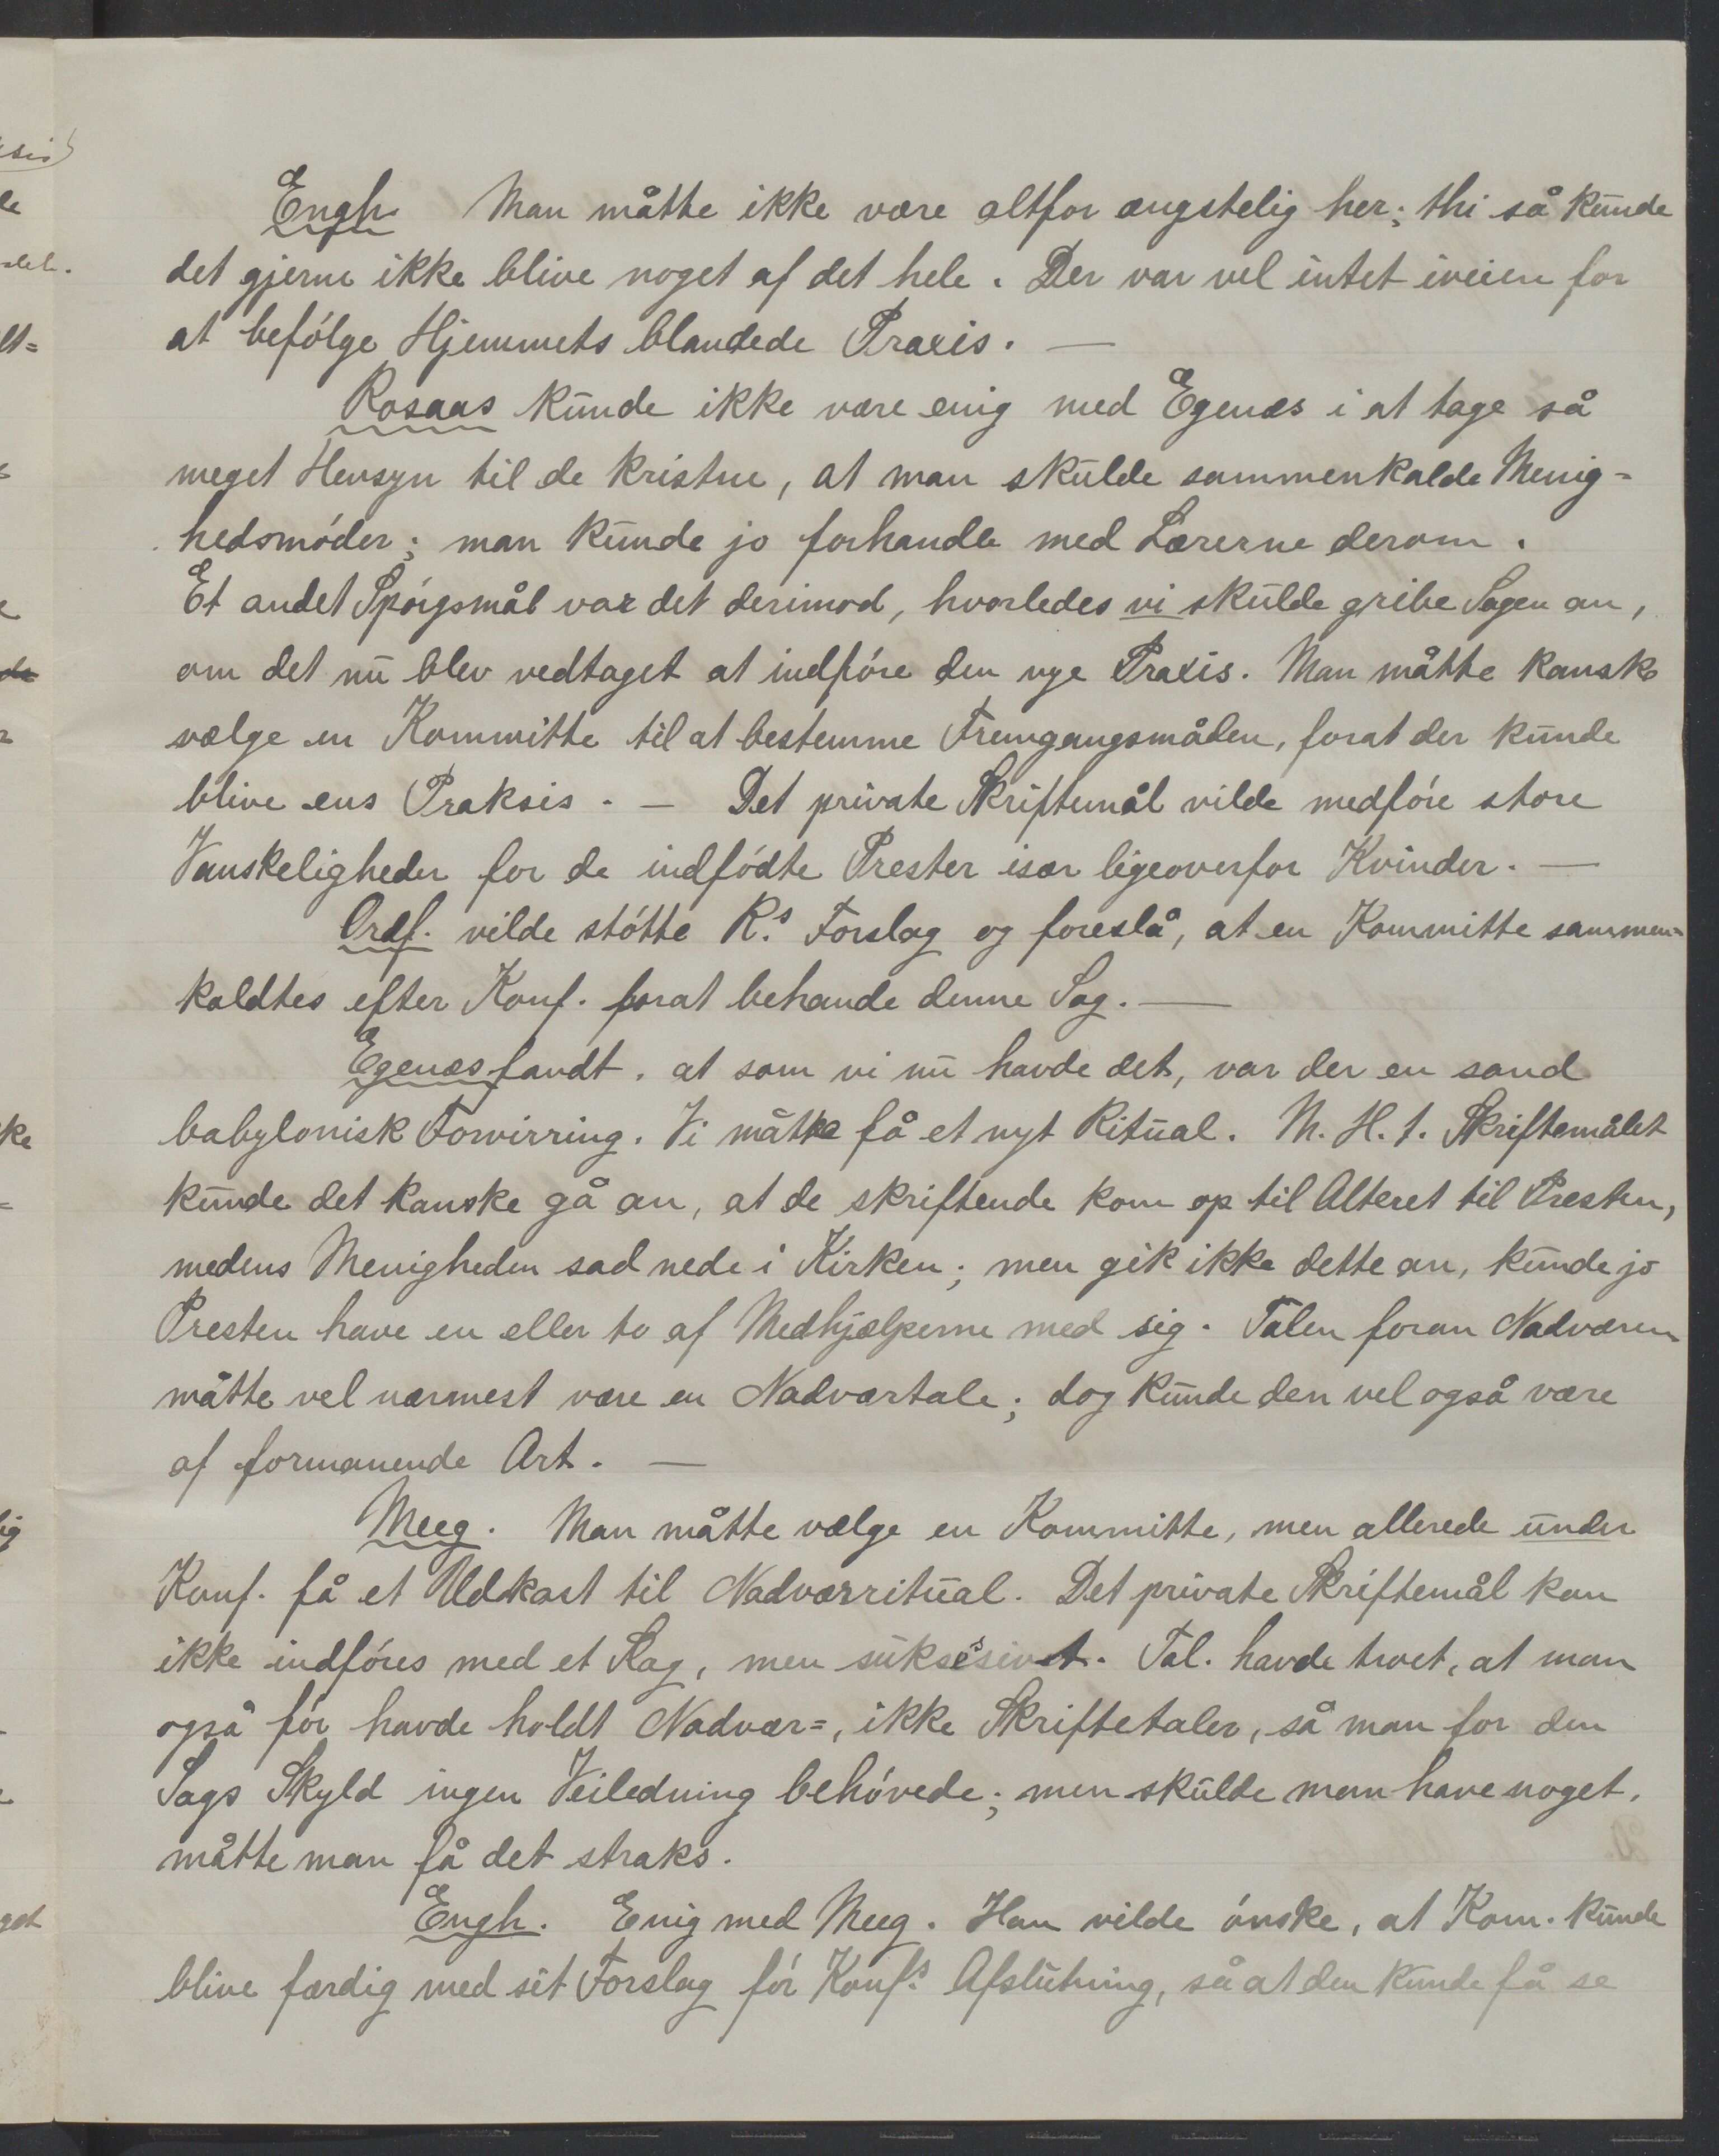 Engh. Man måtte ikke være altfor ængstelig her; thi så kunde
det gjerne ikke blive noget af det hele. Der var vel intet iveien for
at befólge Hjemmets blandede Praxis. —
Rosaas kunde ikke være enig med Egenæs i at tage så
meget Hensyn til de kristne, at man skulde sammenkalde Menig=
hedsmóder; man kunde jo forhandle med Lærerne derom.
Et andet Spórgsmål var det derimod, hvorledes vi skulde gribe Sagen an,
om det nu blev vedtaget at indfóre den nye Praxis. Man måtte kanske
vælge en Kommitte til at bestemme Fremgangsmåden, forat der kunde
blive ens Praksis. — Det private Skriftemål vilde medfóre store
Vanskeligheder for de indfódte Prester især ligeoverfor Kvinder. —
Ordf. vilde stótte R.s Forslag og foreslå, at en Kommitte sammen=
kaldtes efter Konf. forat behande denne Sag. —
Egenæs fandt, at som vi nu havde det, var der en sand
babylonisk Forvirring. Vi måtte få et nyt Ritual. M. H. t. Skriftemålet
kunde det kanske gå an, at de skriftende kom op til Alteret til Presten,
medens Menigheden sad nede i Kirken; men gik ikke dette an, kunde jo
Presten have en eller to af Medhjælperne med sig. Talen foran Nadværen
måtte vel nærmest være en Nadværtale; dog kunde den vel også være
af formanende Art. —
Meeg. Man måtte vælge en Kommitte, men allerede under
Konf. få et Udkast til Nadværritual. Det private Skriftemål kan
ikke indfóres med et Slag, men suksessivt. Tal. havde troet, at man
også fór havde holdt Nadvær=, ikke Skriftetaler, så man for den
Sags Skyld ingen Veiledning behóvede; men skulde man have noget,
måtte man få det straks.
Engh. Enig med Meeg. Han vilde ónske, at Kom. kunde
blive færdig med sit Forslag fór Konf.s Afslutning, så at den kunde få se